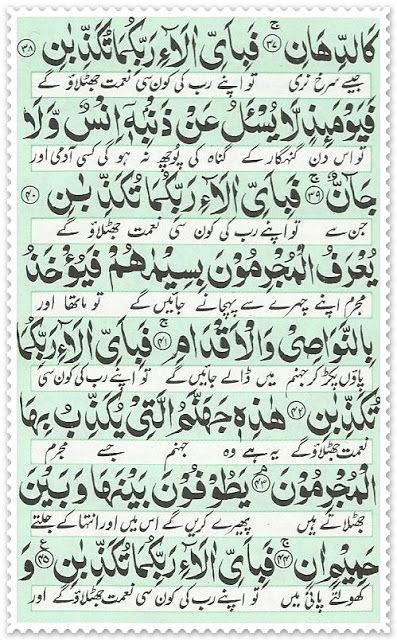 كَالدِّهَانِ ۚ‏﴿٣٧﴾ فَبِأَيِّ اٰلَآءِ رَبِّكُمَا تُكَذِّبٰنِ ﴿٣٨﴾
جیسے سرخ نری تو اپنے رب کی کون سی نعمت جھٹلاؤ گے
فَيَوْمَئِذٍ لَّا يُسْئَلُ عَنْ ذَنْۢبِهٖٓ اِنْسٌ وَّلَا
تو اس دن گنہگار کے گناہ کی پوچھ نہ ہو گی کسی آدمی اور
جَآنٌّ ۚ‏﴿٣٩﴾ فَبِأَيِّ اٰلَآءِ رَبِّكُمَا تُكَذِّبٰنِ ﴿٤٠﴾
جن سے تو اپنے رب کی کون سی نعمت جھٹلاؤ گے
يُعْرَفُ الْمُجْرِمُوْنَ بِسِيْمٰهُمْ فَيُؤْخَذُ
مجرم اپنے چہرے سے پہچانے جائیں گے تو ماتھا اور
بِالنَّوَاصِيْ وَالْاَقْدَامِ ۚ‏﴿٤١﴾ فَبِأَيِّ اٰلَآءِ رَبِّكُمَا
پاؤں پکڑ کر جہنم میں ڈالے جائیں گے تو اپنے رب کی کون سی
تُكَذِّبٰنِ ﴿٤٢﴾ هٰذِهٖ جَهَنَّمُ الَّتِيْ يُكَذِّبُ بِهَا
نعمت جھٹلاؤ گے یہ ہے وہ جہنم جسے مجرم
الْمُجْرِمُوْنَ ۘ‏﴿٤٣﴾ يَطُوْفُوْنَ بَيْنَهَا وَبَيْنَ
جھٹلاتے ہیں پھیرے کریں گے اس میں اور انتہا کے جلتے
حَمِيْمٍ اٰنٍ ۚ‏﴿٤٤﴾ فَبِأَيِّ اٰلَآءِ رَبِّكُمَا تُكَذِّبٰنِ ﴿٤٥﴾ ع وَ
کھولتے پانی میں تو اپنے رب کی کون سی نعمت جھٹلاؤ گے اور